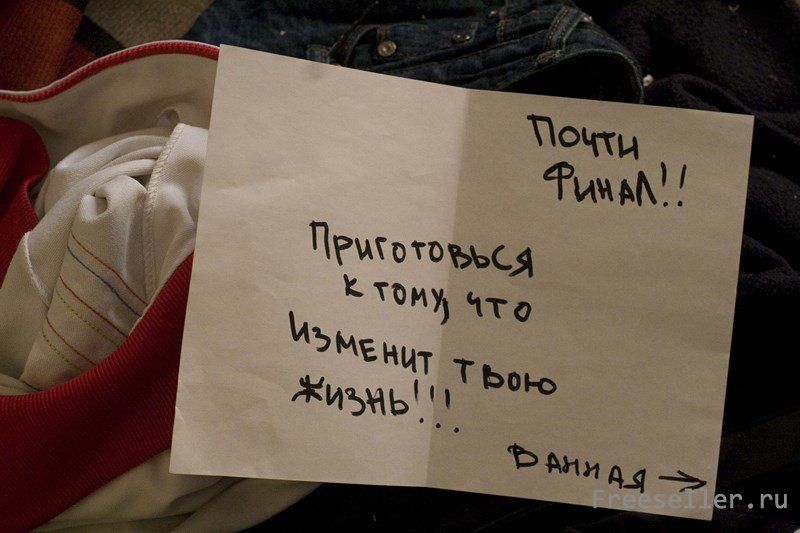 Почти
Финал!!
Приготовься
к тому, что
изменит твою
жизнь!!!
Ванная →
Freeseller.ru